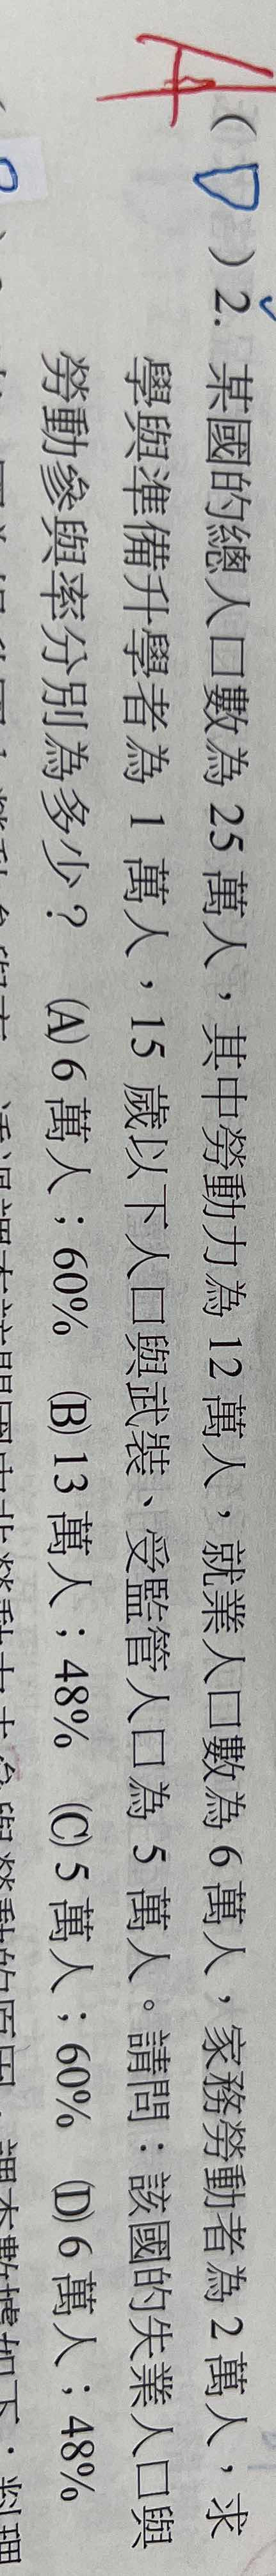 A
( D ) 2. 某國的總人口數為 25 萬人，其中勞動力為 12 萬人，就業人口數為 6 萬人，家務勞動者為 2 萬人，求
學與準備升學者為 1 萬人，15 歲以下人口與武裝、受監管人口為 5 萬人。請問：該國的失業人口與
勞動參與率分別為多少？ (A) 6 萬人；60% (B) 13 萬人；48% (C) 5 萬人；60% (D) 6 萬人；48%